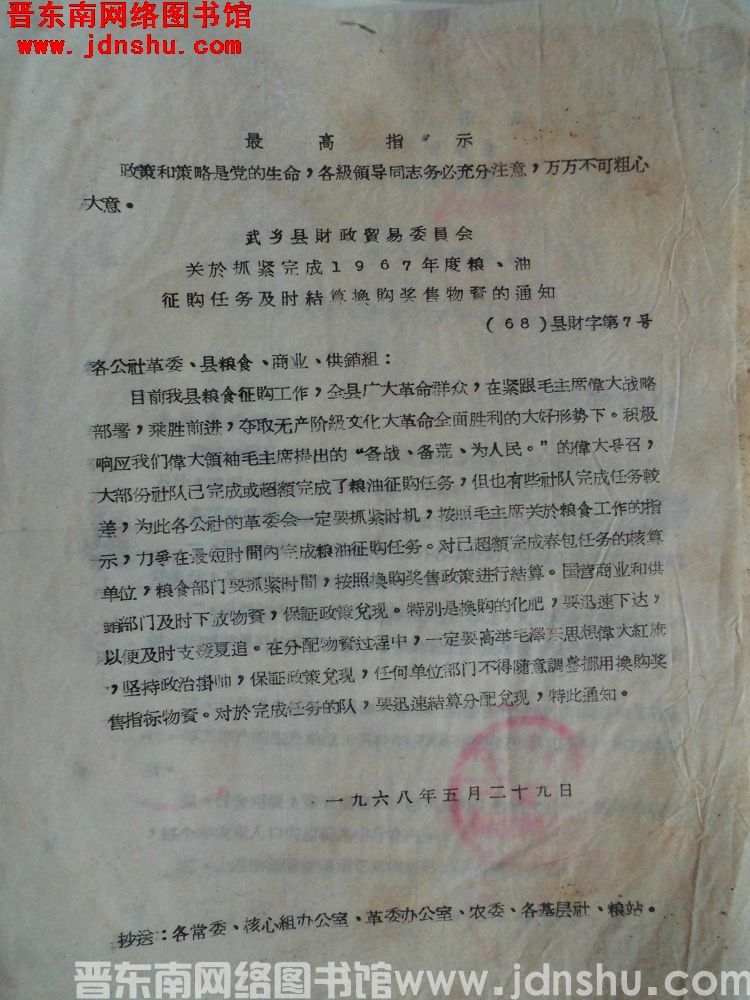 晋东南网络图书馆
www.jdnshu.com
最高指示
政策和策略是党的生命，各級領导同志务必充分注意，万万不可粗心
大意。
武乡县財政貿易委員会
关於抓紧完成1967年度粮、油
征购任务及时結算換购奖售物資的通知
(68)县財字第7号
各公社革委、县粮食、商业、供銷組：
目前我县粮食征购工作，全县广大革命群众，在紧跟毛主席偉大战略
部署，乘胜前进，夺取无产阶級文化大革命全面胜利的大好形势下。积极
响应我们偉大領袖毛主席提出的“备战、备荒、为人民。”的偉大号召，
大部份社队已完成或超額完成了粮油征购任务，但也有些社队完成任务較
差，为此各公社的革委会一定要抓紧时机，按照毛主席关於粮食工作的指
示，力爭在最短时間內完成粮油征购任务。对已超額完成春包任务的核算
单位，粮食部门要抓紧时間，按照換购奖售政策进行結算。国营商业和供
銷部门及时下放物資，保証政策兌现。特別是換购的化肥，要迅速下达，
以便及时支援夏追。在分配物資过程中，一定要高举毛澤东思想偉大紅旗
，坚持政治掛帅，保証政策兌现，任何单位部门不得随意調整挪用換购奖
售指标物資。对於完成任务的队，要迅速結算分配兌现，特此通知。
一九六八年五月二十九日
抄送：各常委、核心組办公室、革委办公室、农委、各基层社、粮站。
晋东南网络图书馆www.jdnshu.com